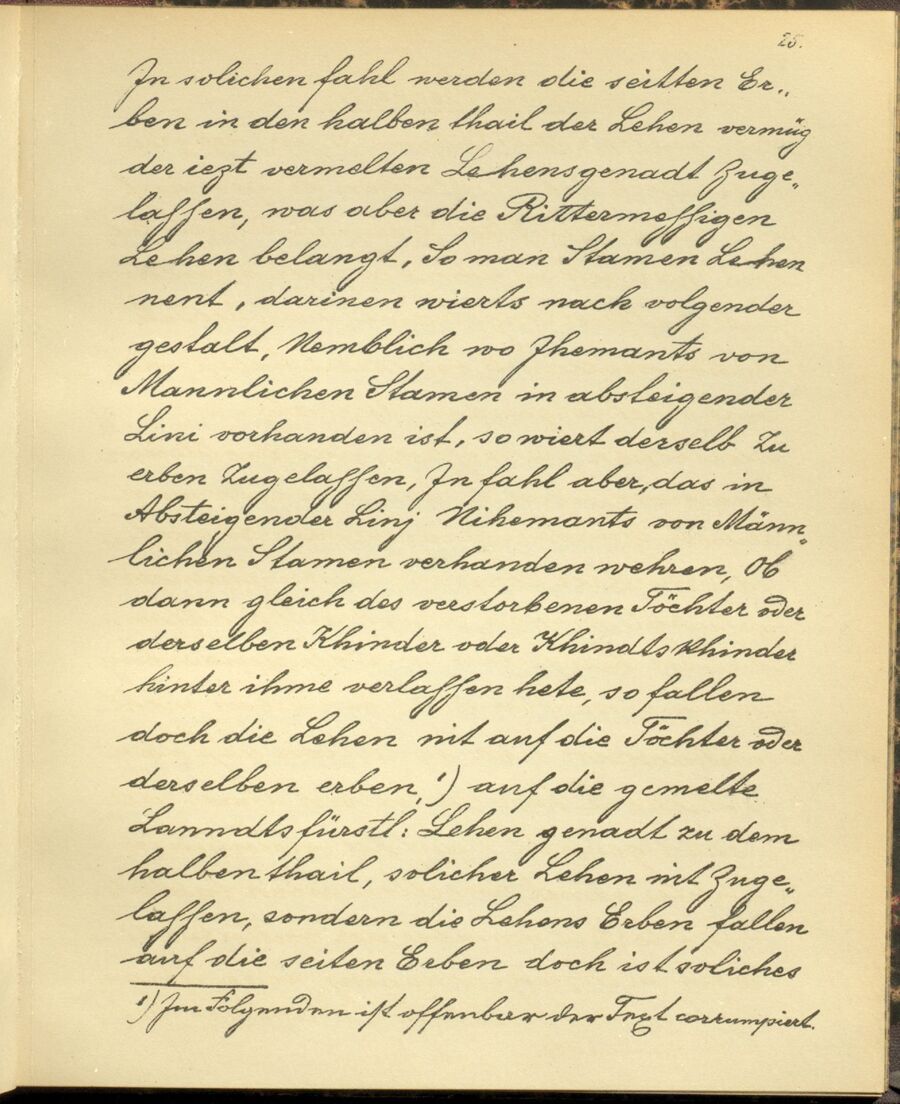 25.
In solichen fahl werden die seitten Er„
ben in den halben thail der Lehen vermüg
der iezt vermelten Lehensgenadt Zuge„
lassen, was aber die Rittermessigen
Lehen belangt, So man Stamen Lehen
nent, darinen wierts nach volgender
gestalt, Nemblich wo Jhemants von
Mannlichen Stamen in absteigender
Lini vorhanden ist, so wiert derselb Zu
erben Zugelassen, In fahl aber, das in
Absteigender Linj Nihemants von Männ„
lichen Stamen verhanden wehren, Ob
dann gleich des verstorbenen Töchter oder
derselben Khinder oder Khindts Khinder
hinter ihme verlassen hete, so fallen
doch die Lehen nit auf die Töchter oder
derselben erben, ¹) auf die gemelte
Lanndtsfürstl: Lehen genadt zu dem
halben thail, solicher Lehen nit Zuge„
lassen, sondern die Lehens Erben fallen
auf die seiten Erben doch ist soliches
¹) Im Folgenden ist offenbar der Text corrumpiert.